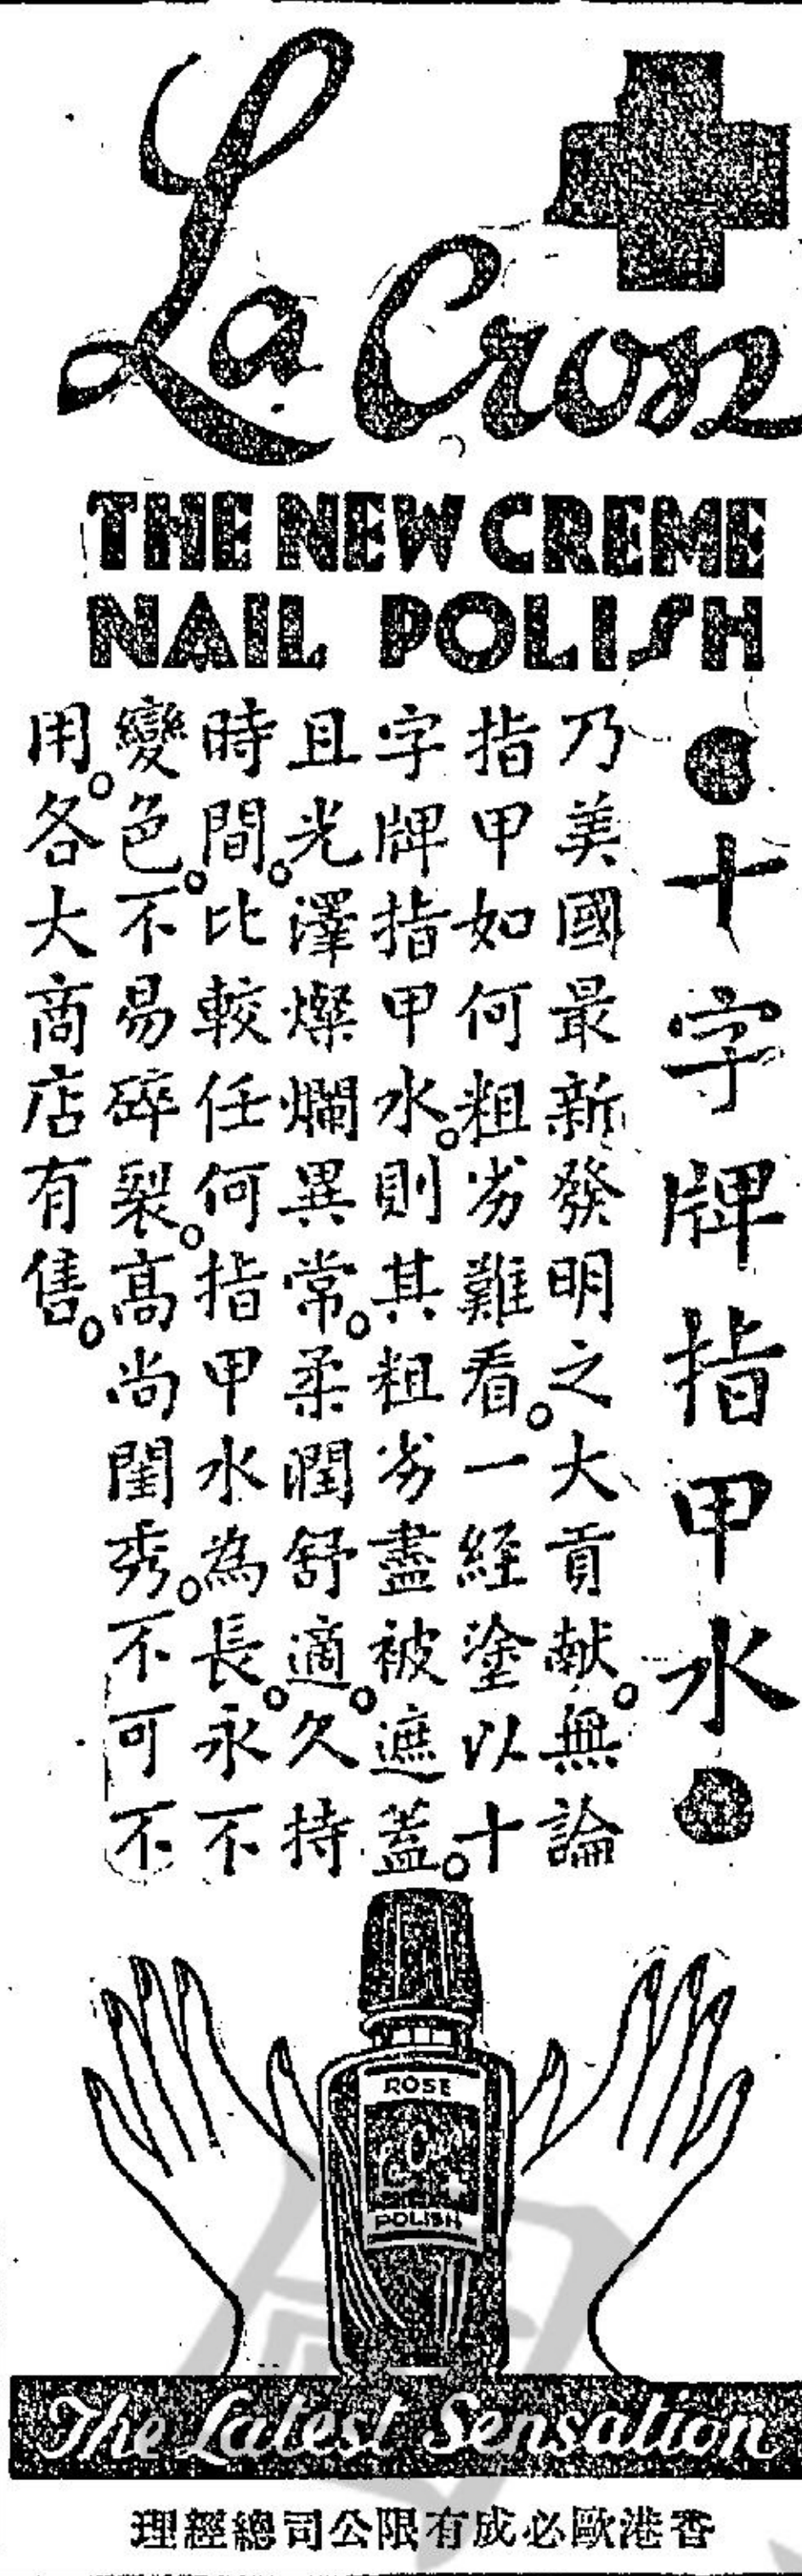 La Cross
THE NEW CREME
NAIL POLISH
●十字牌指甲水●
乃美國最新發明之大貢献。無論
指甲如何粗劣難看。一經塗以十
字牌指甲水。則其粗劣盡被遮蓋。
且光澤燦爛異常。柔潤舒適。久持
時間。比較任何指甲水為長。永不
變色。不易碎裂。高尚閨秀。不可不
用。各大商店有售。
ROSE
La Cross
POLISH
The Latest Sensation
香港歐必成有限公司總經理